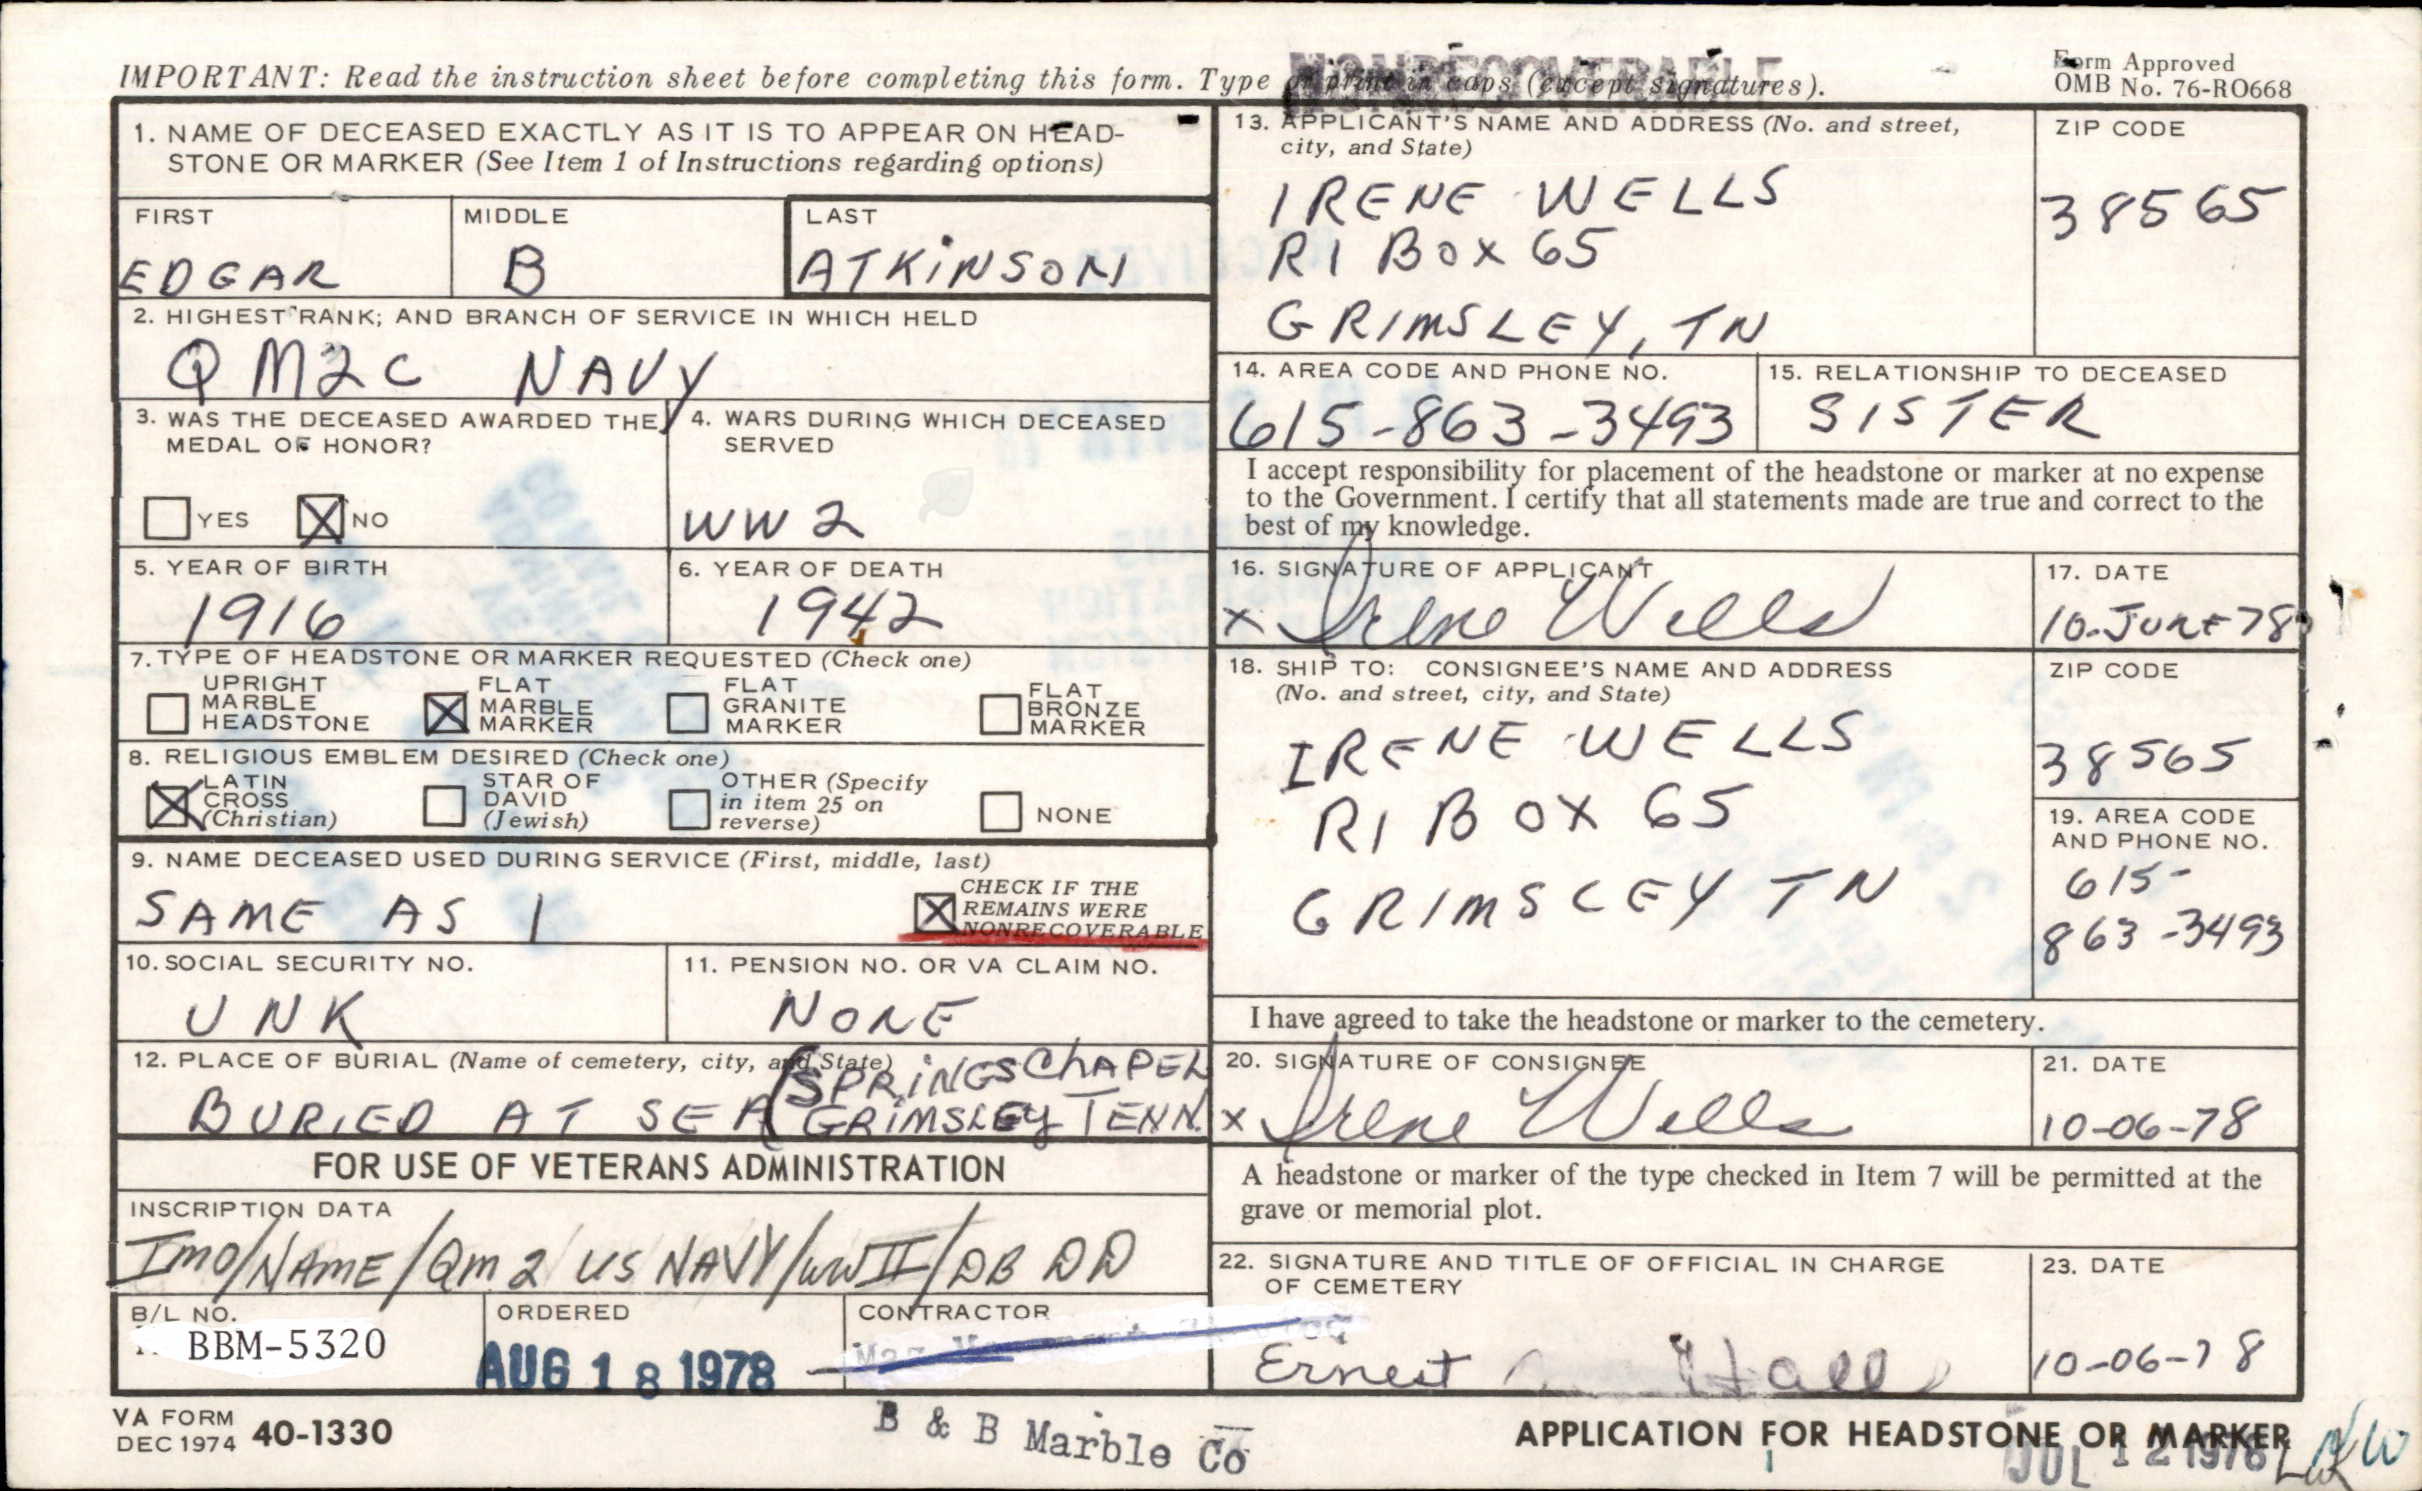 NONRECOVERABLE
IMPORTANT: Read the instruction sheet before completing this form. Type or print in caps (except signatures).
Form Approved
OMB No. 76-RO668
1. NAME OF DECEASED EXACTLY AS IT IS TO APPEAR ON HEAD-
STONE OR MARKER (See Item 1 of Instructions regarding options)
FIRST
MIDDLE
LAST
EDGAR
B
ATKINSON
2. HIGHEST RANK; AND BRANCH OF SERVICE IN WHICH HELD
QM2C NAVY
3. WAS THE DECEASED AWARDED THE
MEDAL OF HONOR?
YES
X NO
4. WARS DURING WHICH DECEASED
SERVED
WW2
5. YEAR OF BIRTH
1916
6. YEAR OF DEATH
1942
7. TYPE OF HEADSTONE OR MARKER REQUESTED (Check one)
UPRIGHT
MARBLE
HEADSTONE
X
FLAT
MARBLE
MARKER
FLAT
GRANITE
MARKER
FLAT
BRONZE
MARKER
8. RELIGIOUS EMBLEM DESIRED (Check one)
X
LATIN
CROSS
(Christian)
STAR OF
DAVID
(Jewish)
OTHER (Specify
in item 25 on
reverse)
NONE
9. NAME DECEASED USED DURING SERVICE (First, middle, last)
SAME AS 1
X
CHECK IF THE
REMAINS WERE
NONRECOVERABLE
10. SOCIAL SECURITY NO.
UNK
11. PENSION NO. OR VA CLAIM NO.
NONE
12. PLACE OF BURIAL (Name of cemetery, city, and State)
BURIED AT SEA
(SPRINGS CHAPEL
GRIMSLEY TENN.
FOR USE OF VETERANS ADMINISTRATION
INSCRIPTION DATA
IMO/NAME/QM 2 US NAVY/WW II/DB DD
B/L NO.
BBM-5320
ORDERED
AUG 18 1978
CONTRACTOR
B & B Marble Co
VA FORM
DEC 1974 40-1330
13. APPLICANT'S NAME AND ADDRESS (No. and street,
city, and State)
IRENE WELLS
R1 BOX 65
GRIMSLEY, TN
ZIP CODE
38565
14. AREA CODE AND PHONE NO.
615-863-3493
15. RELATIONSHIP TO DECEASED
SISTER
I accept responsibility for placement of the headstone or marker at no expense
to the Government. I certify that all statements made are true and correct to the
best of my knowledge.
16. SIGNATURE OF APPLICANT
x Irene Wells
17. DATE
10-JUNE 78
18. SHIP TO: CONSIGNEE'S NAME AND ADDRESS
(No. and street, city, and State)
IRENE WELLS
R1 BOX 65
GRIMSLEY TN
ZIP CODE
38565
19. AREA CODE
AND PHONE NO.
615-
863-3493
I have agreed to take the headstone or marker to the cemetery.
20. SIGNATURE OF CONSIGNEE
x Irene Wells
21. DATE
10-06-78
A headstone or marker of the type checked in Item 7 will be permitted at the
grave or memorial plot.
22. SIGNATURE AND TITLE OF OFFICIAL IN CHARGE
OF CEMETERY
Ernest Hall
23. DATE
10-06-78
APPLICATION FOR HEADSTONE OR MARKER
JUL 12 1978